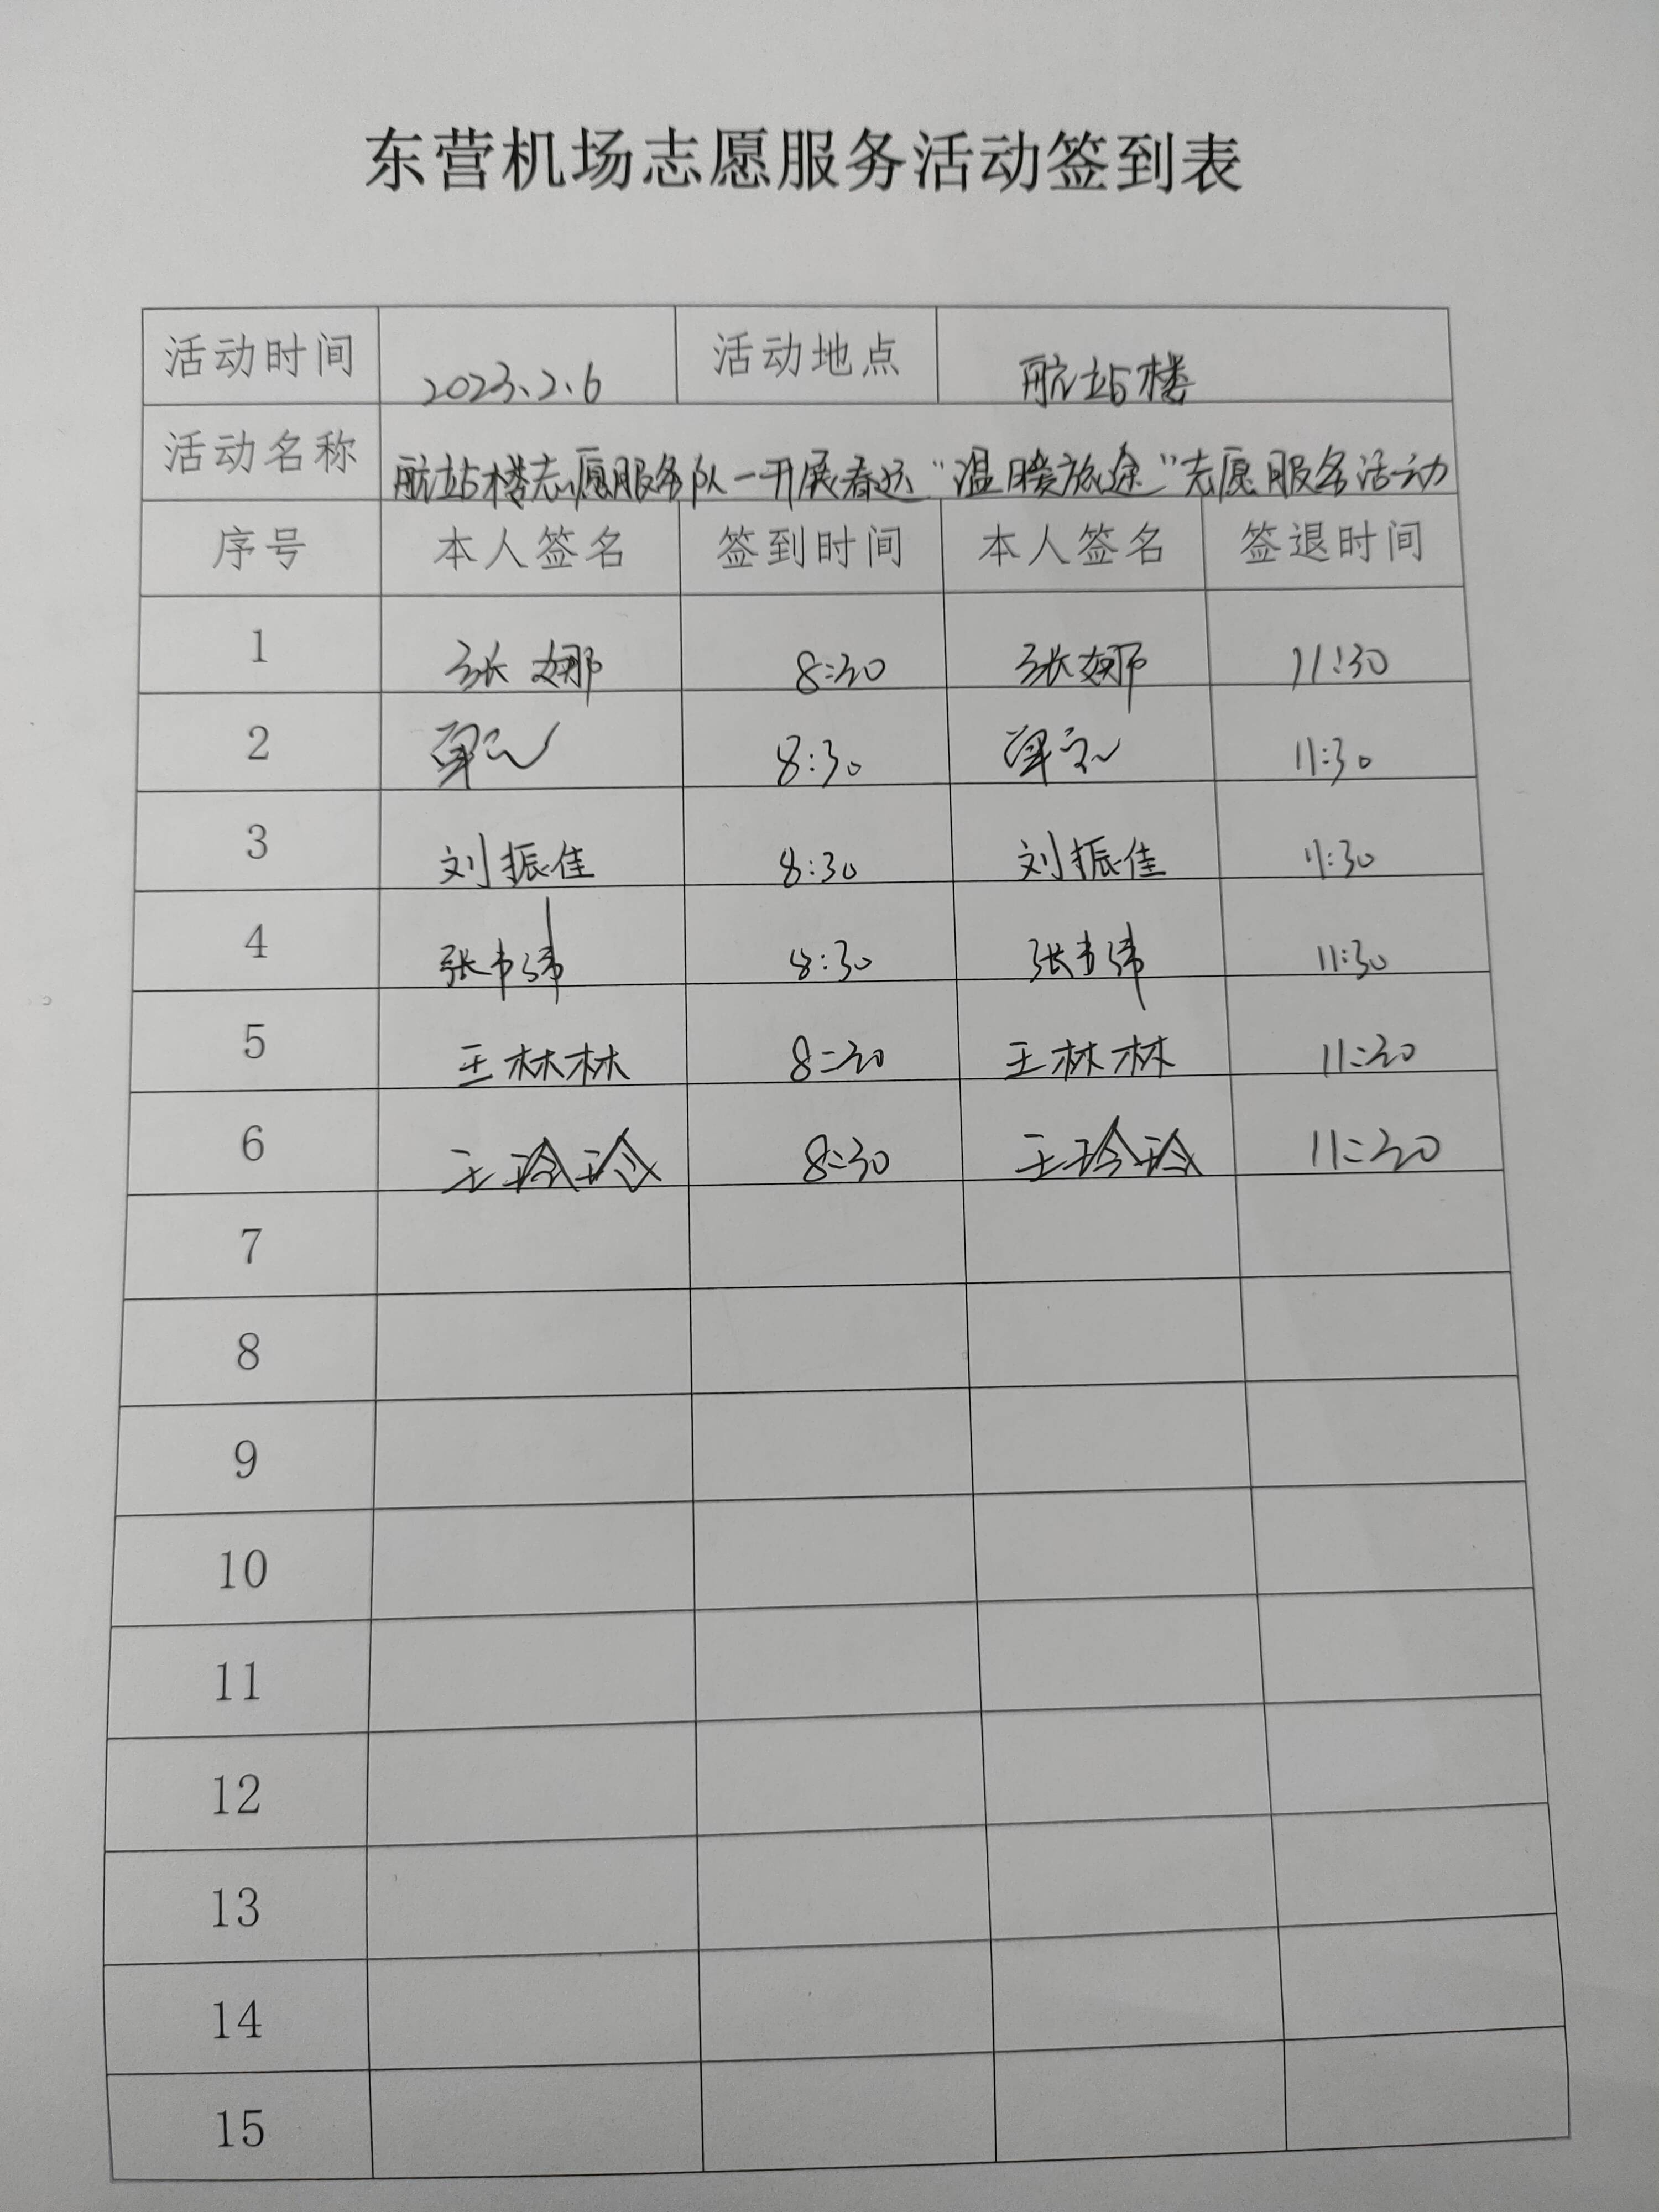 东营机场志愿服务活动签到表
活动时间 2023.2.6 活动地点 航站楼
活动名称 航站楼志愿服务队—开展春运“温暖旅途”志愿服务活动
序号 本人签名 签到时间 本人签名 签退时间
1 张娜 8:30 张娜 11:30
2 8:30 11:30
3 刘振佳 8:30 刘振佳 11:30
4 张 8:30 张 11:30
5 王林林 8:30 王林林 11:30
6 王玲玲 8:30 王玲玲 11:30
7
8
9
10
11
12
13
14
15